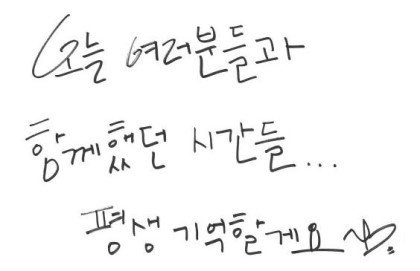 오늘 여러분들과
함께했던 시간들...
평생 기억할게요